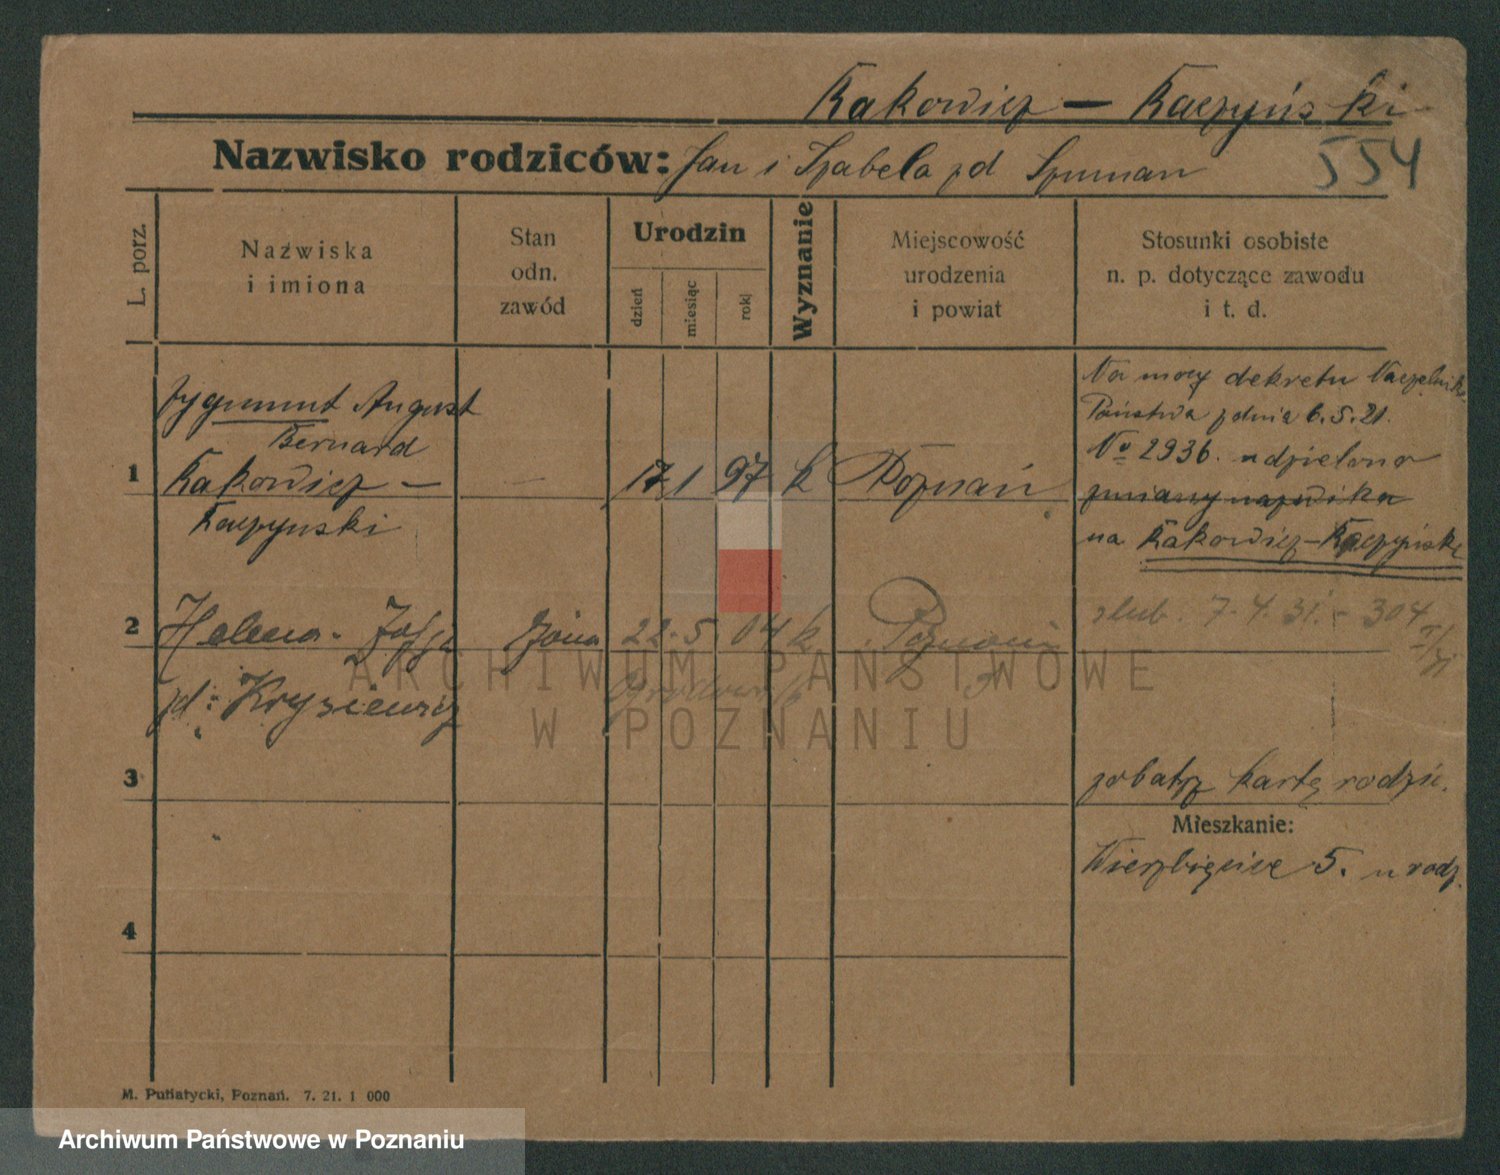 Kakowicz — Kaczyński
Nazwisko rodziców: Jan i Izabela zd Szuman
554
L. porz.
Nazwiska i imiona
Stan odn. zawód
Urodzin
dzień
miesiąc
rok
Wyznanie
Miejscowość urodzenia i powiat
Stosunki osobiste n. p. dotyczące zawodu i t. d.
1
Zygmunt August
Bernard
Kakowicz —
Kaczyński
—
17 1 97 k Poznań
Na mocy dekretu Naczelnika
Państwa z dnia 6.5.21.
No 2936. udzielono
zmiany nazwiska
na Kakowicz-Kaczyński
2
Helena - Zofja
zd: Krysiewicz
żona
22. 5. 04 k Poznań
ślub. 7. 4. 31. - 304
3
zobatrz kartę rodzic.
Mieszkanie:
Wierzbięcice 5. u rodz.
4
M. Putiatycki, Poznań. 7. 21. 1 000
ARCHIWUM PAŃSTWOWE
W POZNANIU
Archiwum Państwowe w Poznaniu